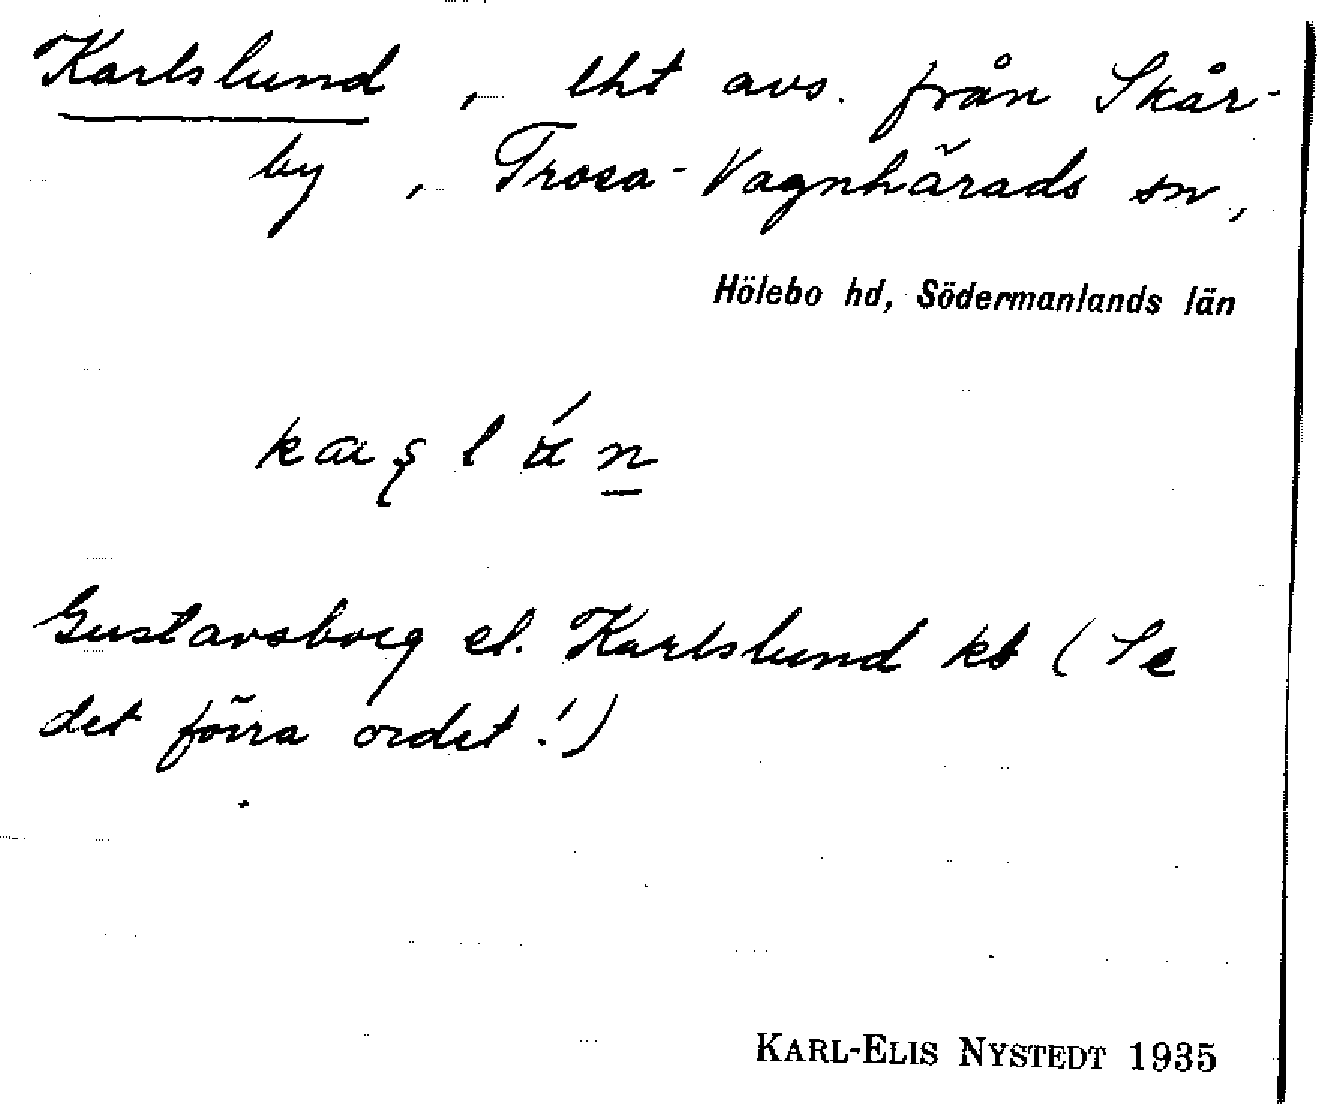 Karlslund, lht avs. från Skår-
by, Trosa-Vagnhärads sn,
Hölebo hd, Södermanlands län
Gustavsborg el. Karlslund kt (Se
det förra ordet!)
KARL-ELIS NYSTEDT 1935